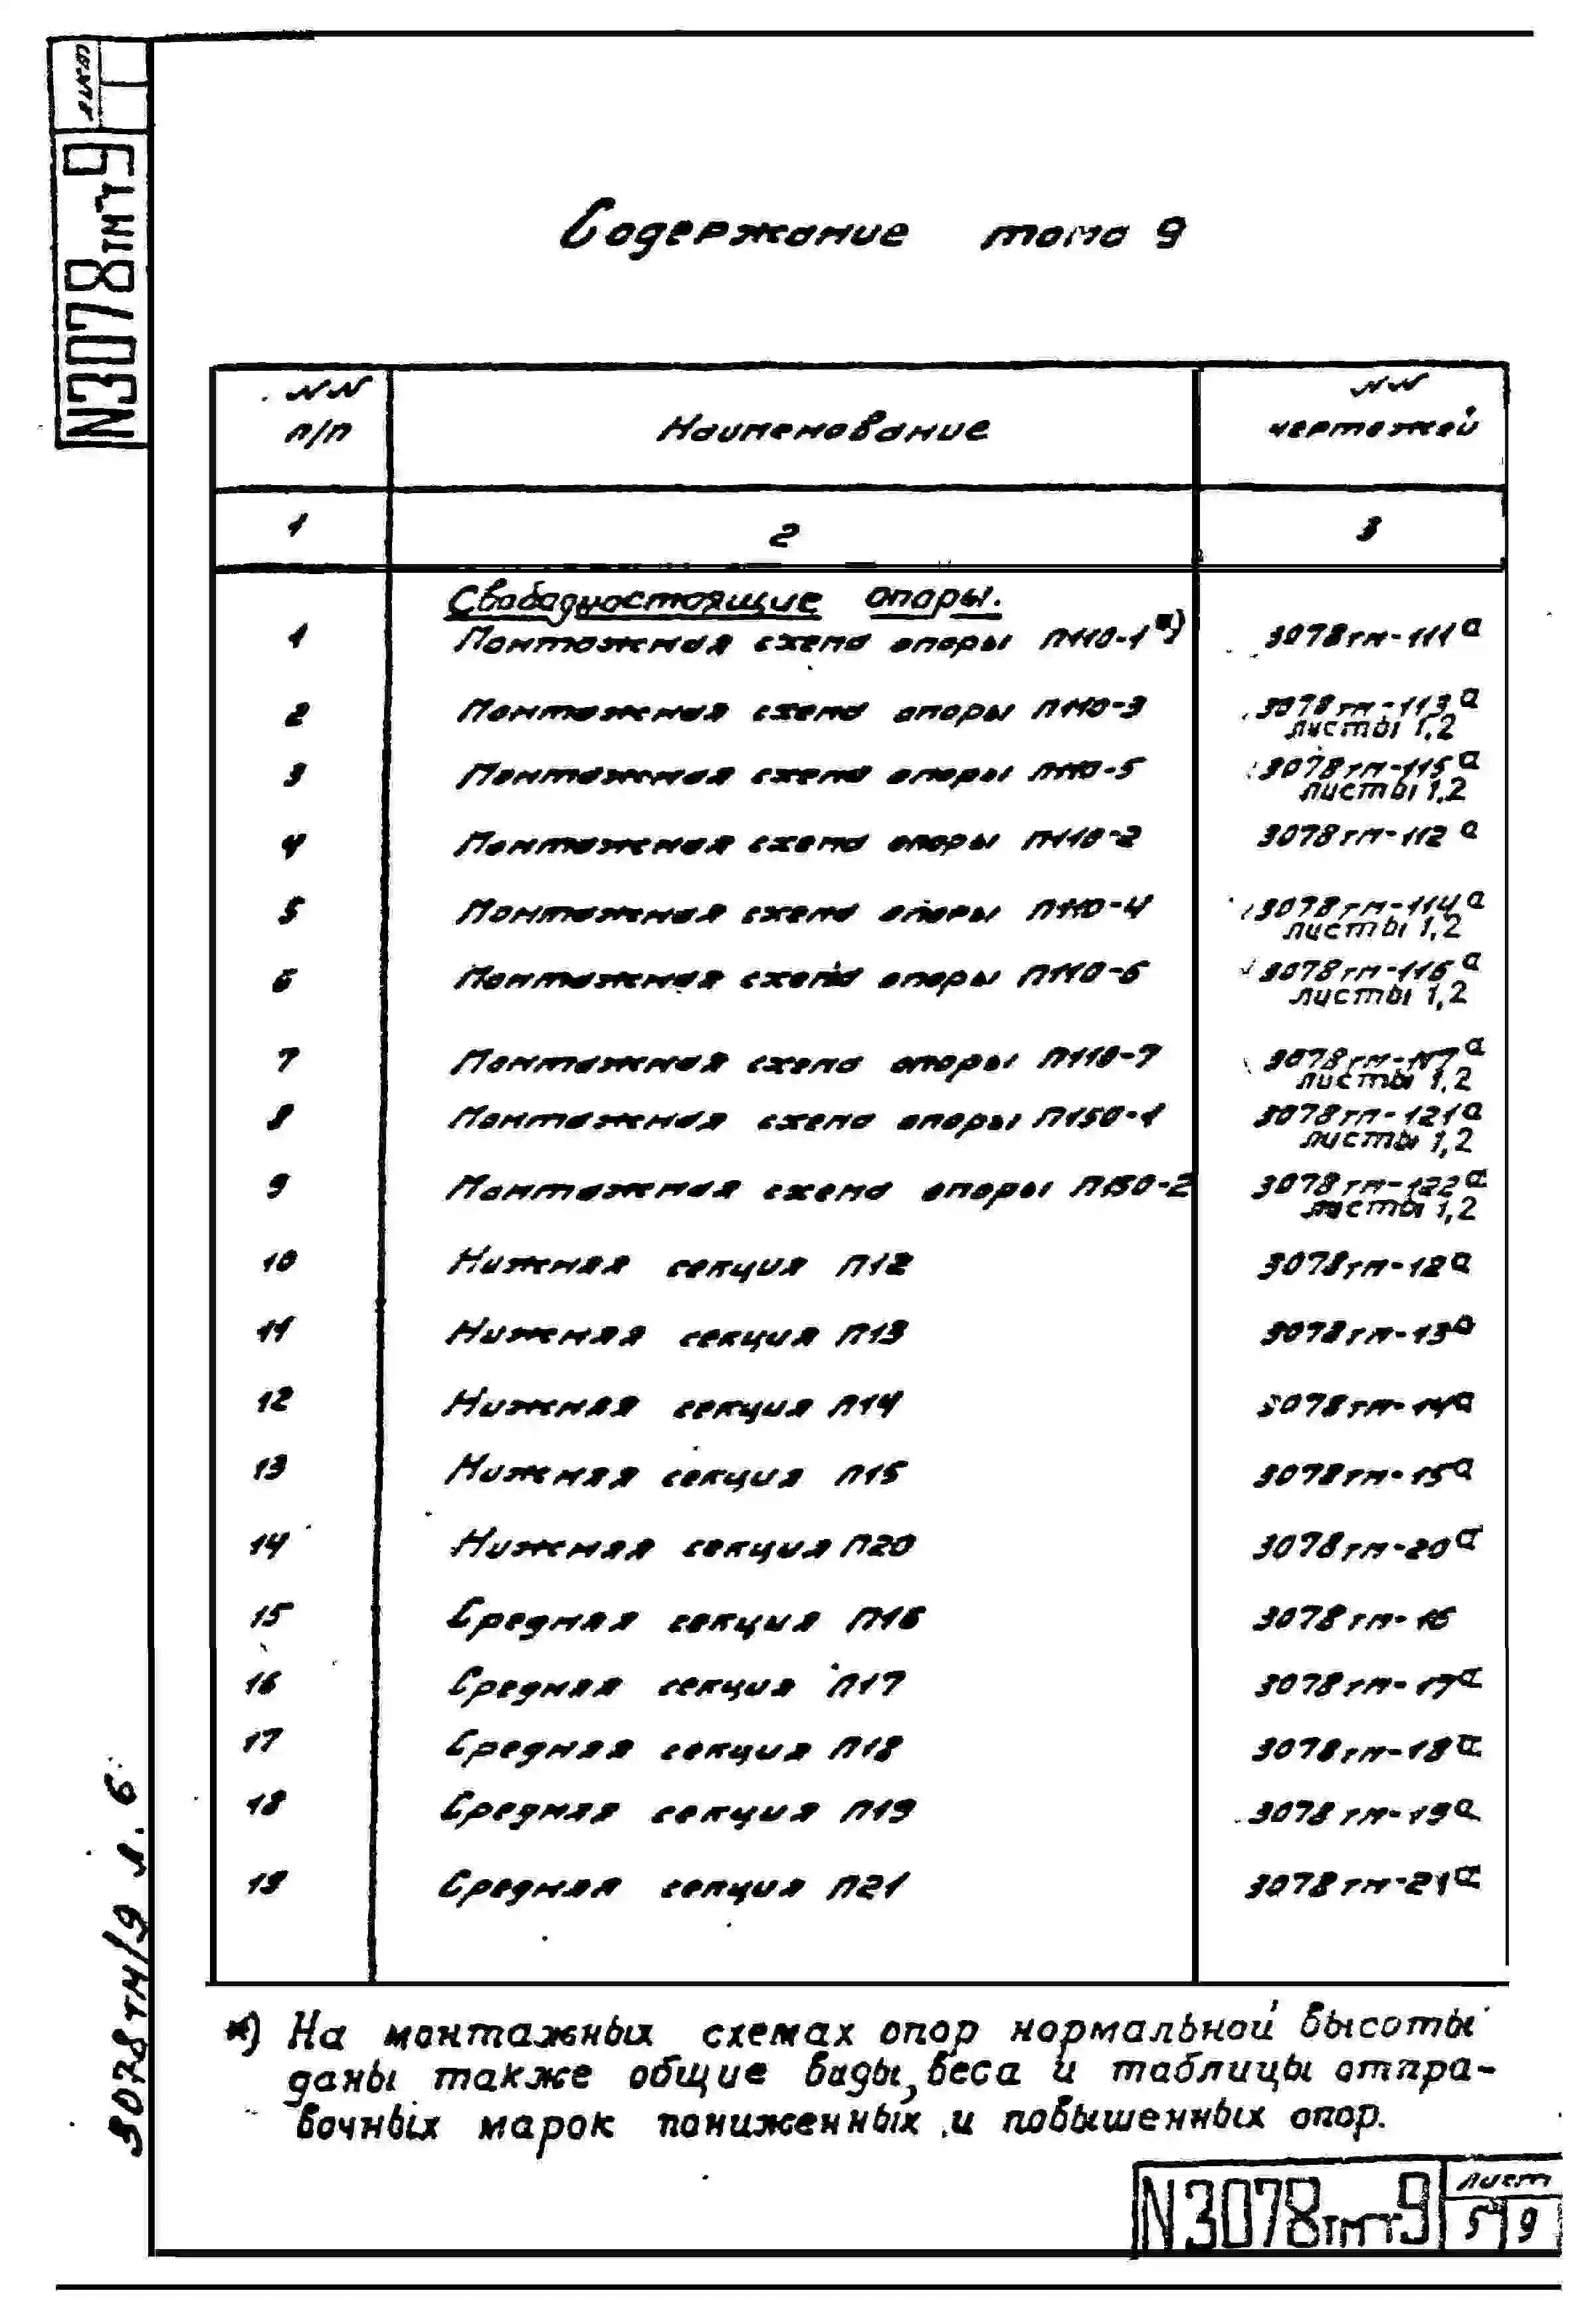 N3078тм т9
Содержание тома 9
NN
п/п
Наименование
NN
чертежей
1 2 3
Свободностоящие опоры.
1 Монтажная схема опоры П110-1*) 3078тм-111а
2 Монтажная схема опоры П110-3 3078тм-113а
листы 1,2
3 Монтажная схема опоры П110-5 3078тм-115а
листы 1,2
4 Монтажная схема опоры П110-2 3078тм-112а
5 Монтажная схема опоры П110-4 3078тм-114а
листы 1,2
6 Монтажная схема опоры П110-6 3078тм-116а
листы 1,2
7 Монтажная схема опоры П110-7 3078тм-117а
листы 1,2
8 Монтажная схема опоры П150-1 3078тм-121а
листы 1,2
9 Монтажная схема опоры П150-2 3078тм-122а
листы 1,2
10 Нижняя секция П12 3078тм-12а
11 Нижняя секция П13 3078тм-13а
12 Нижняя секция П14 3078тм-14а
13 Нижняя секция П15 3078тм-15а
14 Нижняя секция П20 3078тм-20а
15 Средняя секция П16 3078тм-16
16 Средняя секция П17 3078тм-17а
17 Средняя секция П18 3078тм-18а
18 Средняя секция П19 3078тм-19а
19 Средняя секция П21 3078тм-21а
*) На монтажных схемах опор нормальной высоты
даны также общие виды, веса и таблицы отпра-
вочных марок пониженных и повышенных опор.
3078тм/9 л. 6
N3078тм т9
Лист
5 9